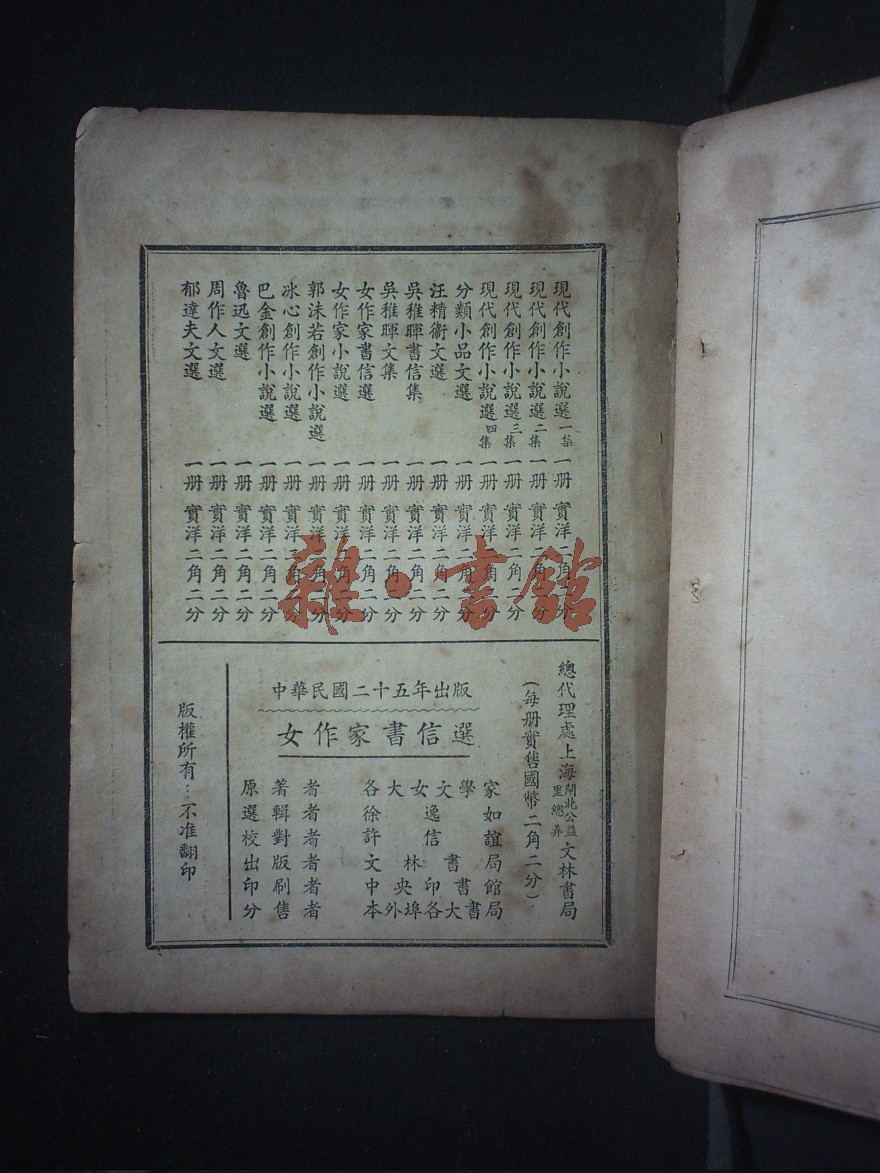 現代創作小說選一集 一册 實洋二角二分
現代創作小說選二集 一册 實洋二角二分
現代創作小說選三集 一册 實洋二角二分
現代創作小說選四集 一册 實洋二角二分
分類小品文選 一册 實洋二角二分
汪精衞文選 一册 實洋二角二分
吳稚暉書信集 一册 實洋二角二分
吳稚暉文集 一册 實洋二角二分
女作家書信選 一册 實洋二角二分
女作家小說選 一册 實洋二角二分
郭沫若創作小說選 一册 實洋二角二分
冰心創作小說選 一册 實洋二角二分
巴金創作小說選 一册 實洋二角二分
魯迅文選 一册 實洋二角二分
周作人文選 一册 實洋二角二分
郁達夫文選 一册 實洋二角二分
總代理處上海閘北公益里總弄文林書局
（每册實售國幣二角二分）
中華民國二十五年出版
女作家書信選
原著者 各大女文學家
選輯者 徐逸如
校對者 許信誼
出版者 文林書局
印刷者 中央印書館
分售者 本外埠各大書局
版權所有…不准翻印
雜·書館